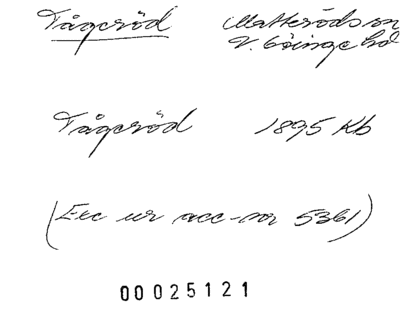 Tågeröd Matteröds sn
V. Göinge hd
Tågeröd 1895 Kb
(Exc ur acc-nr 5361)
00025121